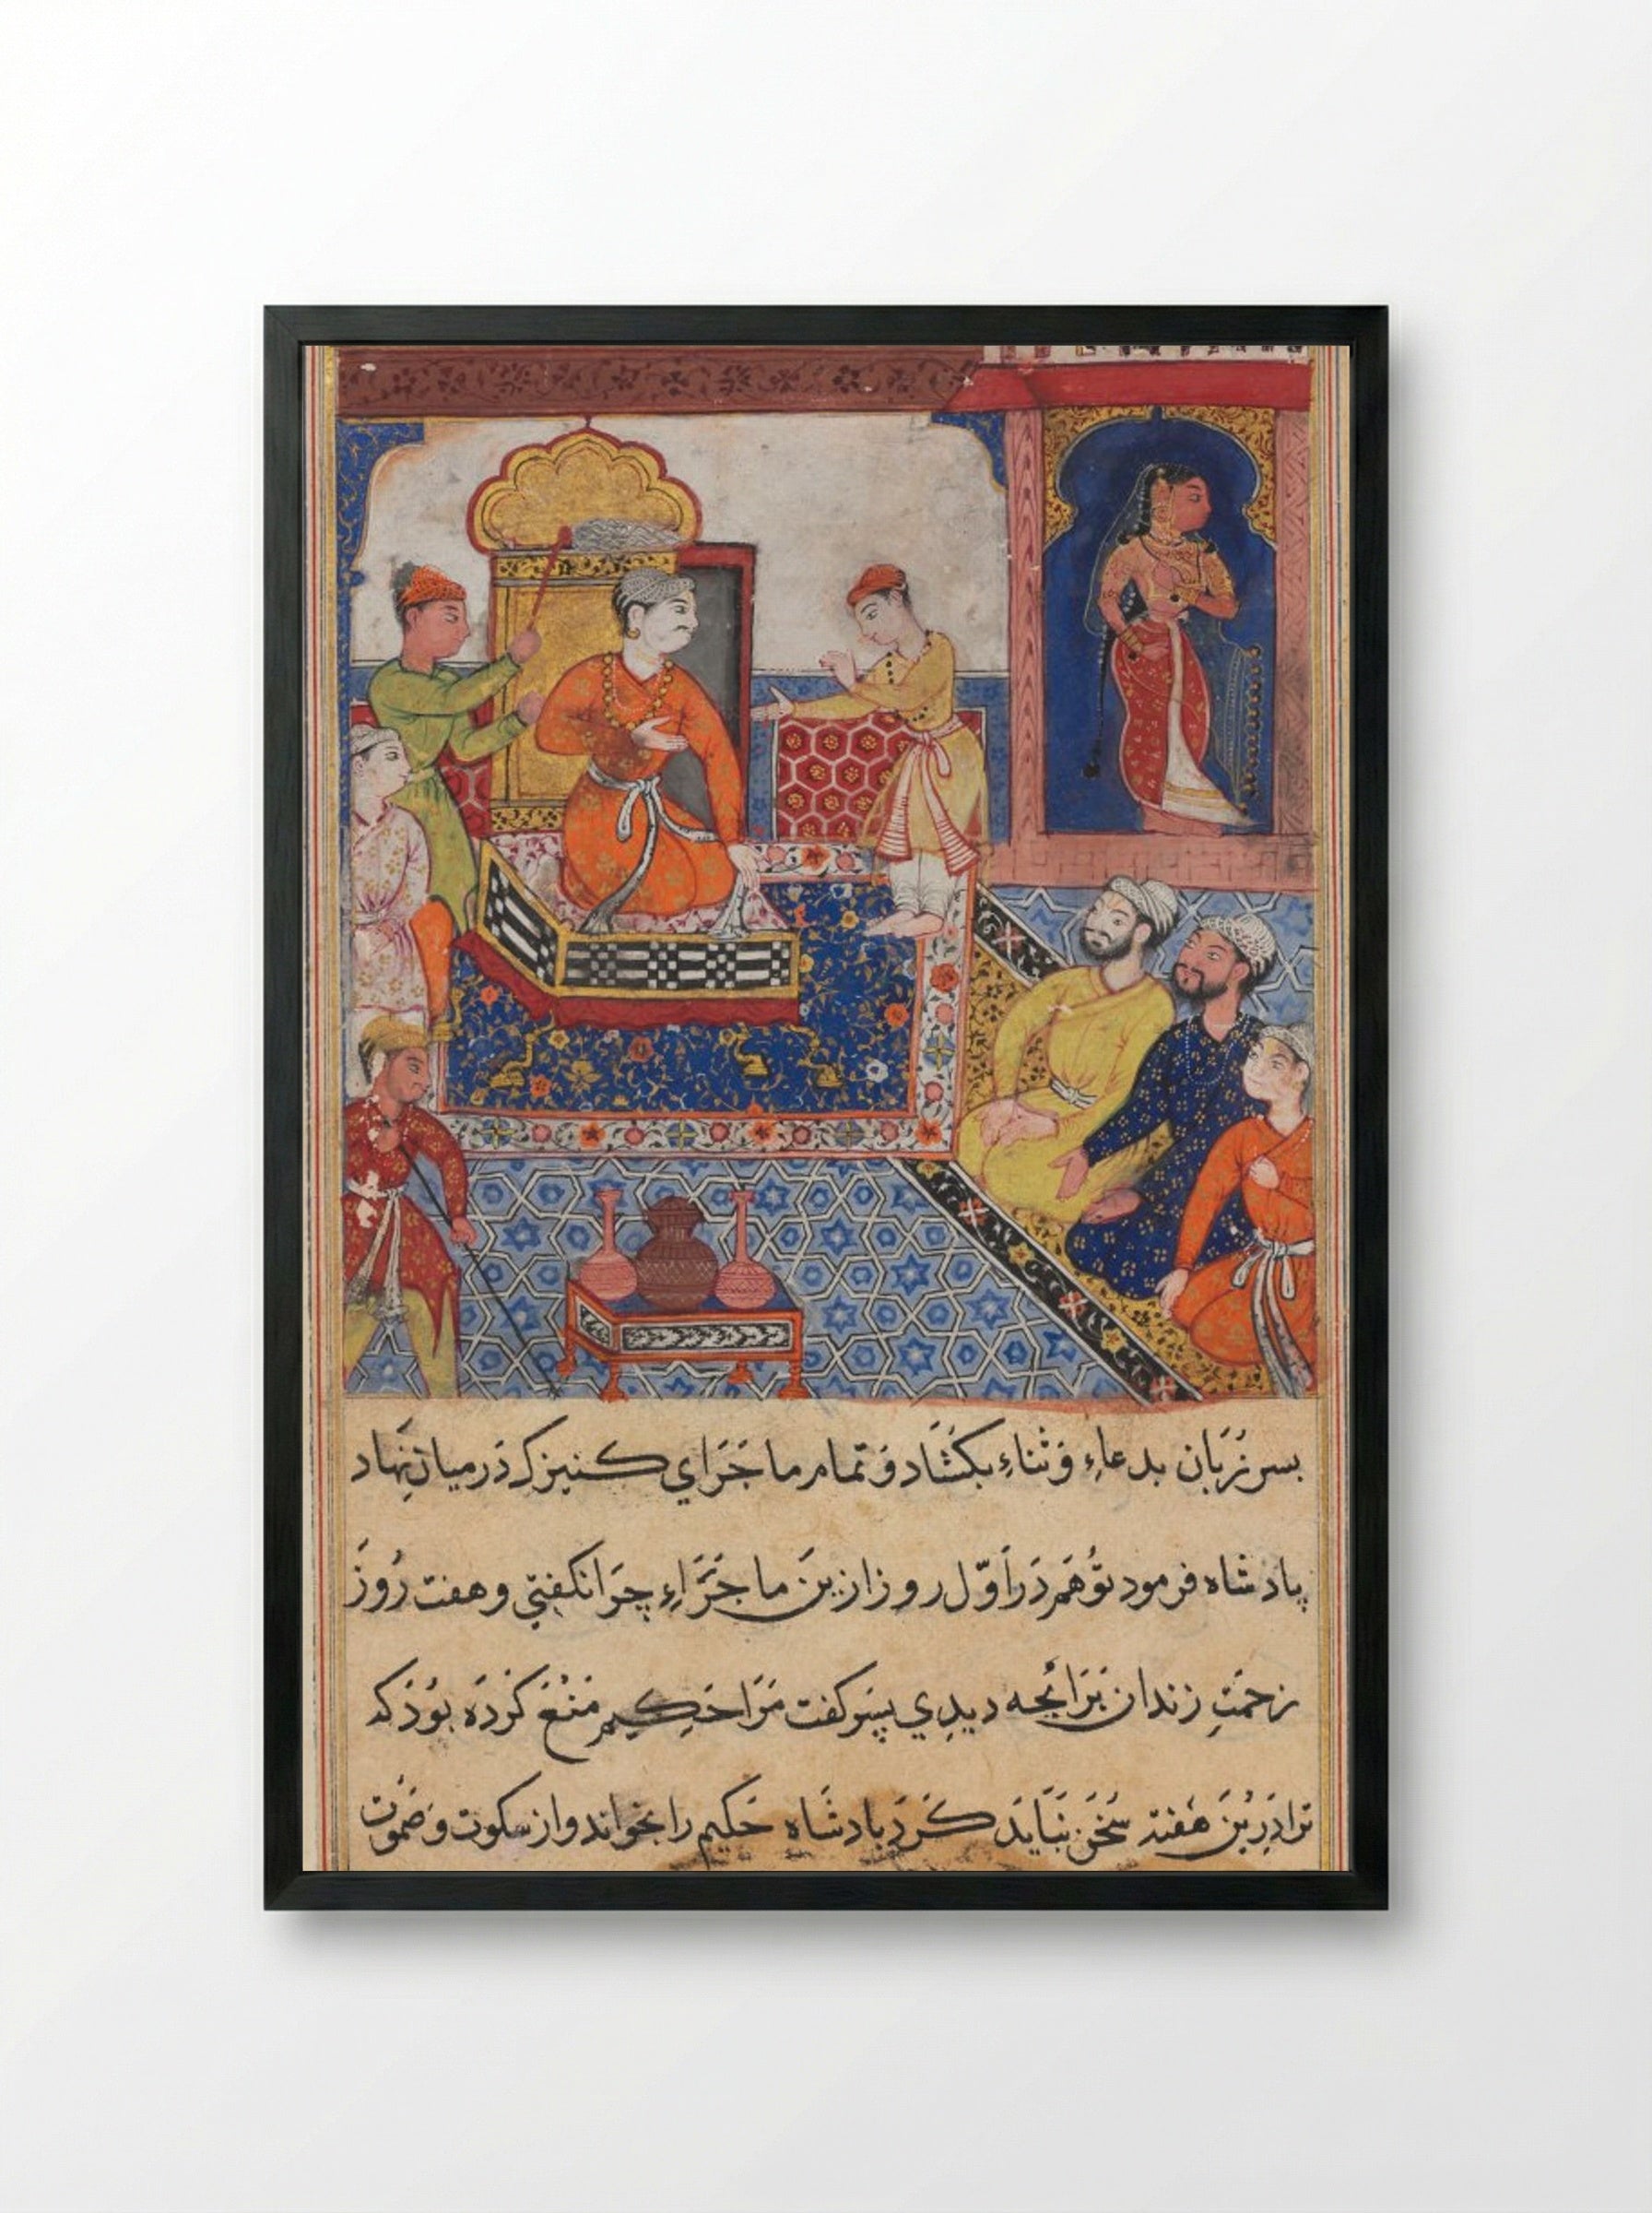 پس زبان بدعاء و ثناء بکشاد و تمام ماجرای کنیزک در میان نهاد
پادشاه فرمود تو هم در اول روز ازین ماجراء چرا نکفتی و هفت روز
زحمت زندان برا نچه دیدی پسر کفت مرا حکیم منع کرده بود که
ترا درین هفته سخن نباید کرد پادشاه حکیم را بخواند و از سکوت و صموت